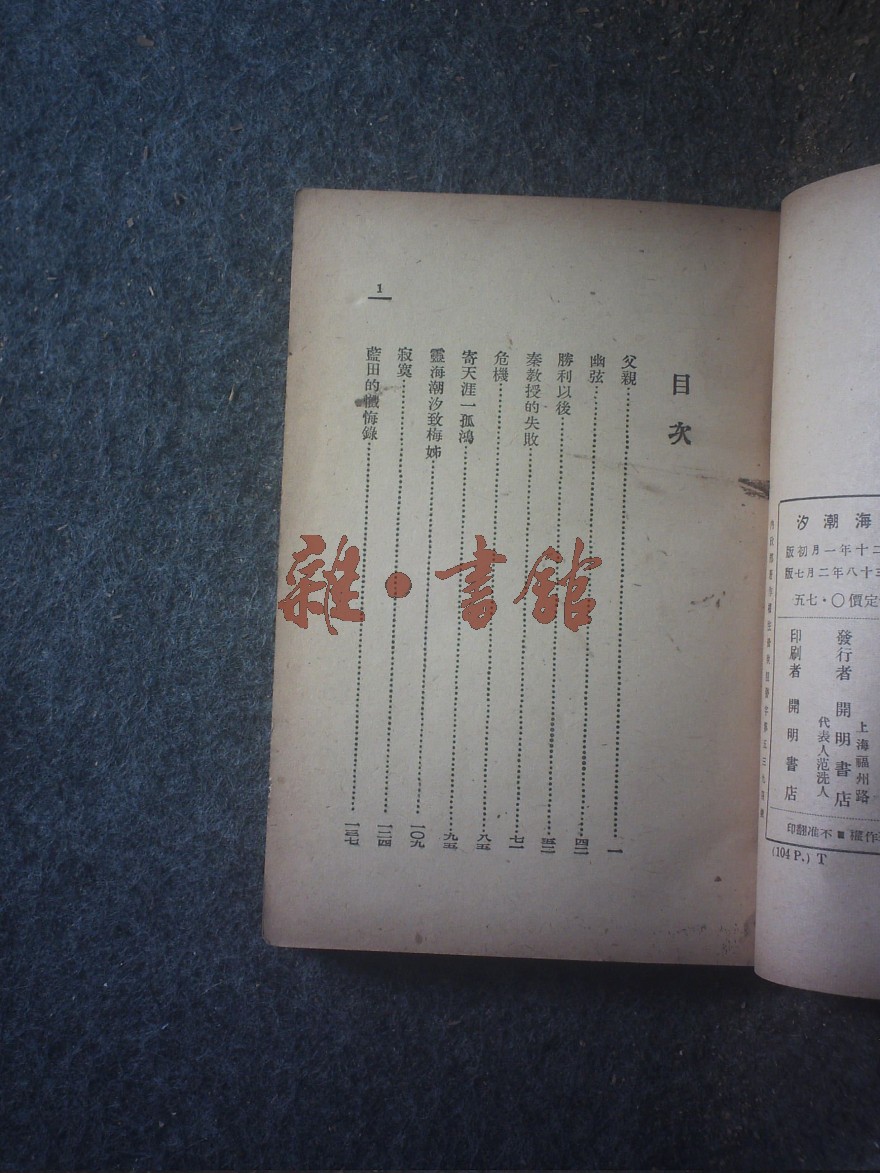 汐潮海
版初月一年十二
版七月二年八十三
五七·〇價定
發行者 開明書店
上海福州路
代表人范洗人
印刷者 開明書店
印翻准不■權作
(104 P.) T
目次
父親 一
幽弦 四二
勝利以後 五二
秦教授的失敗 七一
危機 八五
寄天涯一孤鴻 九五
靈海潮汐致梅姊 一〇九
寂寞 一二四
藍田的懺悔錄 一三七
1
雜·書館